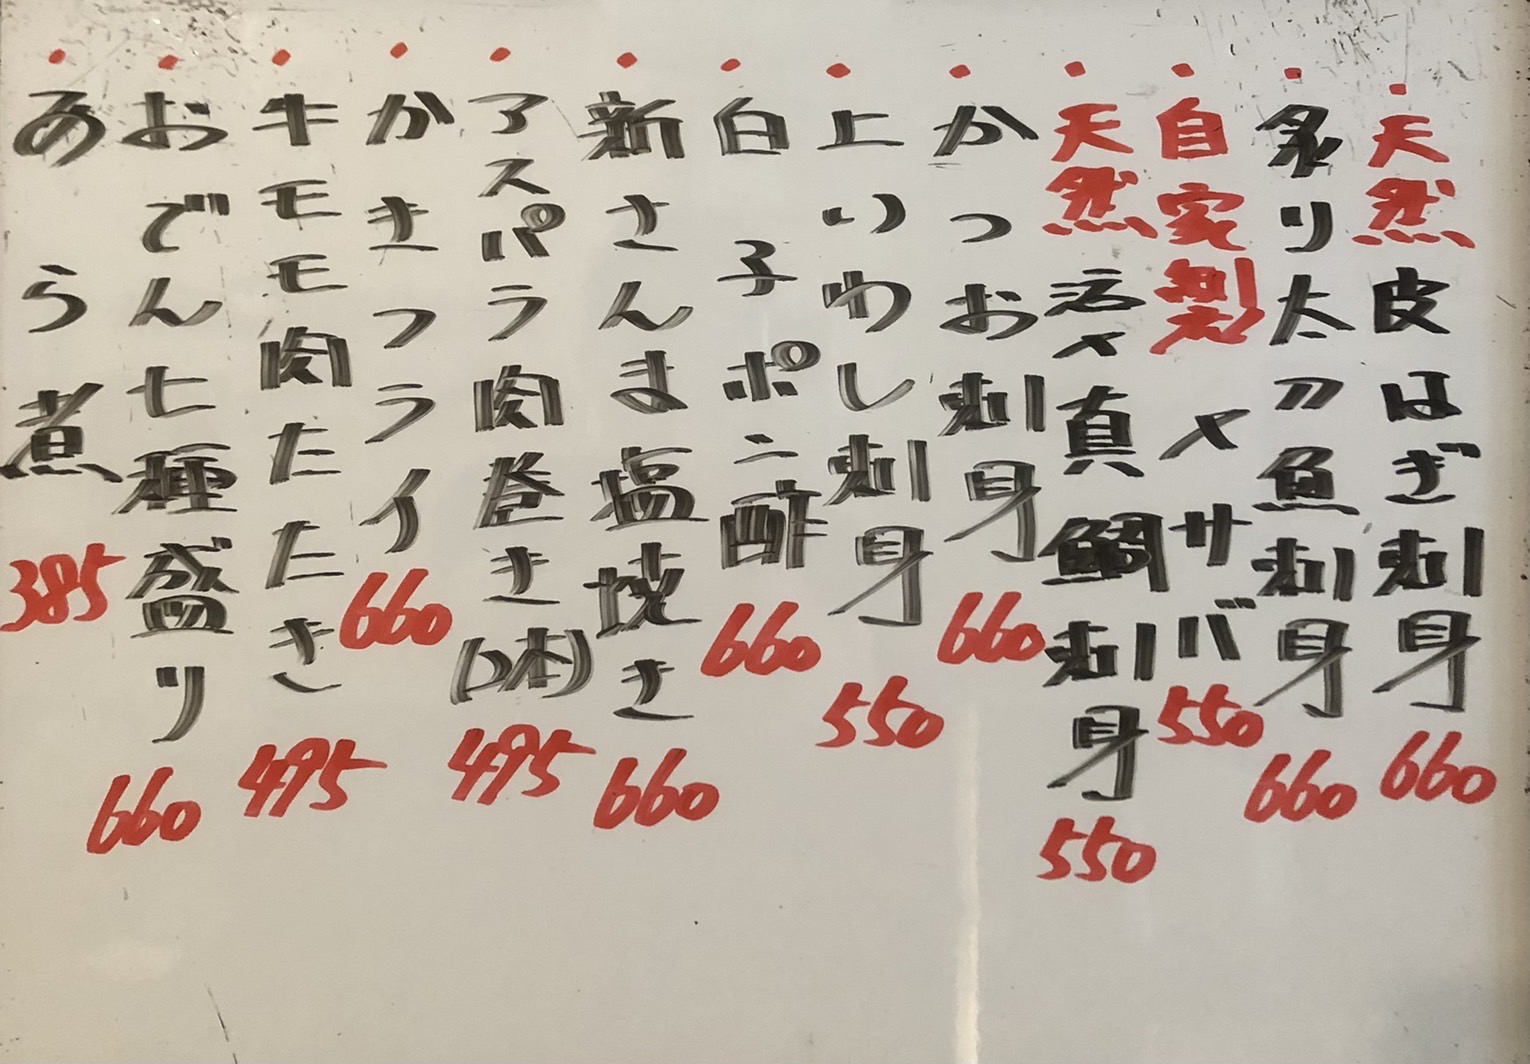 ・天然皮はぎ刺身 660
・炙り太刀魚刺身 660
・自家製〆サバ 550
・天然活〆真鯛刺身 550
・かつお刺身 660
・上いわし刺身 550
・白子ポン酢 660
・新さんま塩焼き 660
・アスパラ肉巻き(2本) 495
・かきフライ 660
・牛モモ肉たたき 495
・おでん七種盛り 660
・あら煮 385